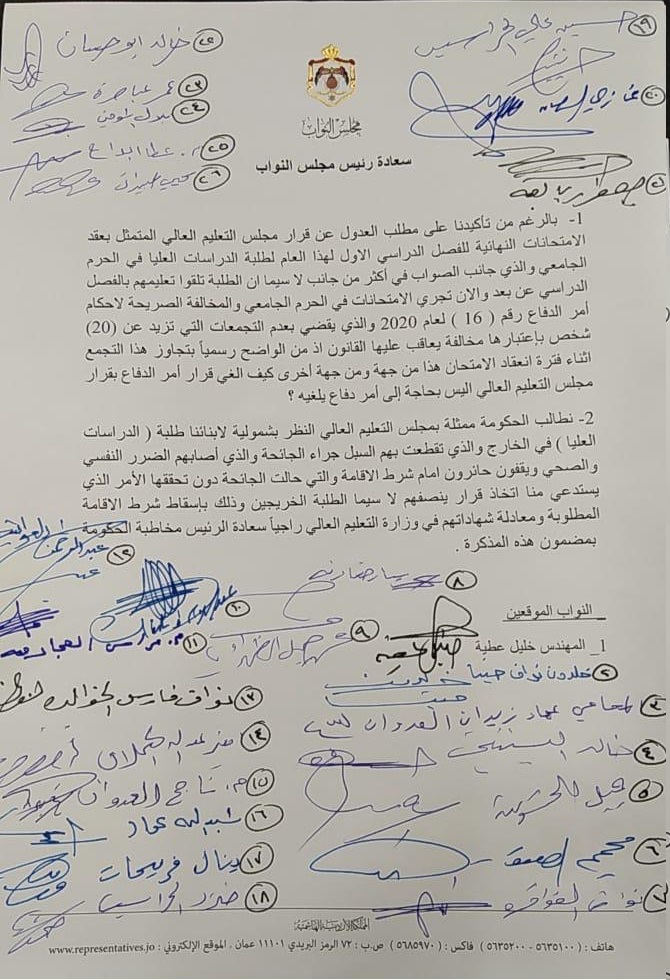 مجلس النواب
سعادة رئيس مجلس النواب
1- بالرغم من تأكيدنا على مطلب العدول عن قرار مجلس التعليم العالي المتمثل بعقد
الامتحانات النهائية للفصل الدراسي الاول لهذا العام لطلبة الدراسات العليا في الحرم
الجامعي والذي جانب الصواب في أكثر من جانب لا سيما ان الطلبة تلقوا تعليمهم بالفصل
الدراسي عن بعد والان تجري الامتحانات في الحرم الجامعي والمخالفة الصريحة لاحكام
أمر الدفاع رقم ( 16 ) لعام 2020 والذي يقضي بعدم التجمعات التي تزيد عن (20)
شخص بإعتبارها مخالفة يعاقب عليها القانون اذ من الواضح رسمياً بتجاوز هذا التجمع
اثناء فترة انعقاد الامتحان هذا من جهة ومن جهة أخرى كيف الغي قرار أمر الدفاع بقرار
مجلس التعليم العالي اليس بحاجة إلى أمر دفاع يلغيه ؟
2- نطالب الحكومة ممثلة بمجلس التعليم العالي النظر بشمولية لابنائنا طلبة ( الدراسات
العليا ) في الخارج والذي تقطعت بهم السبل جراء الجائحة والذي أصابهم الضرر النفسي
والصحي ويقفون حائرون امام شرط الاقامة والتي حالت الجائحة دون تحققها الأمر الذي
يستدعي منا اتخاذ قرار ينصفهم لا سيما الطلبة الخريجين وذلك بإسقاط شرط الاقامة
المطلوبة ومعادلة شهاداتهم في وزارة التعليم العالي راجياً سعادة الرئيس مخاطبة الحكومة
بمضمون هذه المذكرة .
النواب الموقعين
1_ المهندس خليل عطية
٢ خلدون نواف حينا
٣ المحامي عماد زيدان العدوان
٤ خالد
٥
٦
٧ نواف
٨
٩
١٠
١١ م.
١٢ عبدالرحمن
١٣ نواف فارس الخوالدة
١٤
١٥ م. ناجح العدوان
١٦ عبدالله عماد
١٧ ينال فريحات
١٨ ضرار
١٩ حسين علي
٢٠ غازي
٢١ جعفر ربابعه
٢٢ خالد ابو حسان
٢٣ عمر عياصرة
٢٤
٢٥ م. عطا ابداح
٢٦
المملكة الأردنية الهاشمية
هاتف : ( ٥٦٣٥١٠٠ - ٥٦٣٥٢٠٠ ) فاكس : ( ٥٦٨٥٩٧٠ ) ص.ب : ٧٢ الرمز البريدي ١١١٠١ عمان . الموقع الإلكتروني : www.representatives.jo